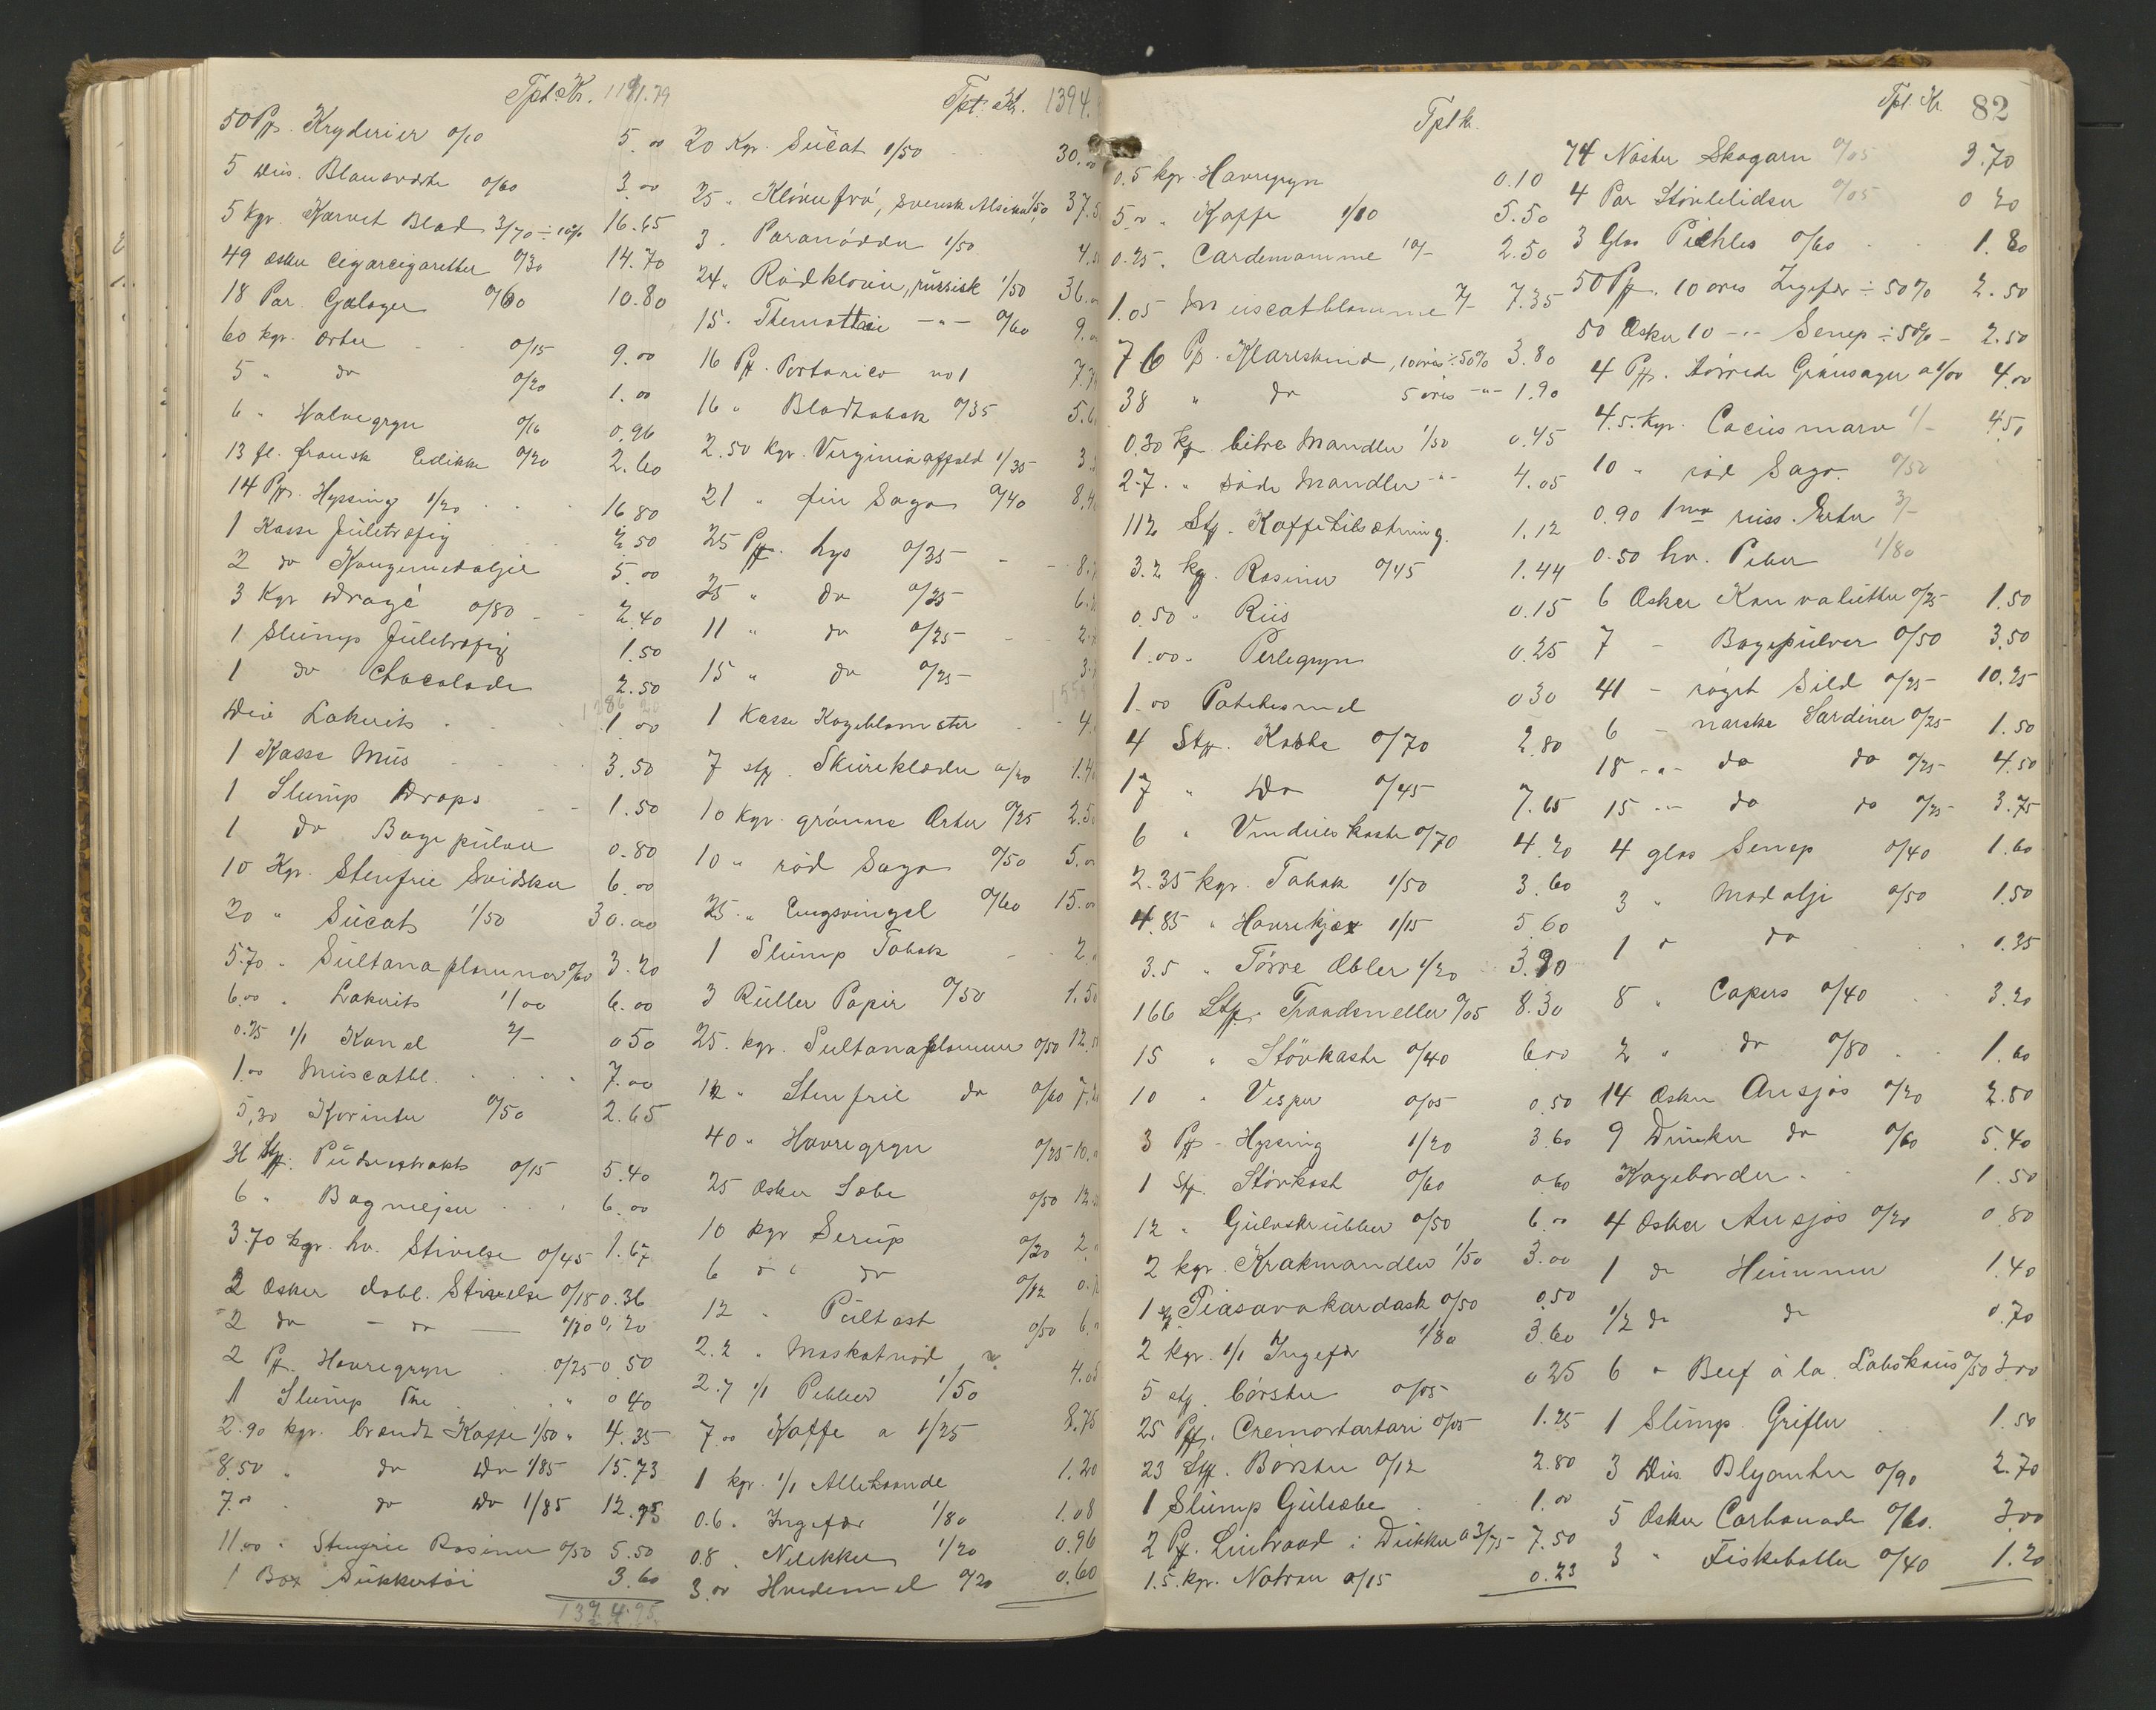 Tpt. Kr. 1191.79
50 Pk. Kryderier 0/10 5.00
5 Dus. Blanksverte 0/60 3.00
5 kgr. Karvet Blad 3/70 ÷ 10% 16.65
49 Æsker Cigarcigaretter 0/30 14.70
18 Par Galoger 0/60 10.80
60 kgr. Erter 0/15 9.00
5 " do 0/20 1.00
6 " Halvegryn 0/16 0.96
13 fl. fransk Edikke 0/20 2.60
14 Pk. Hyssing 1/20 16.80
1 Kasse Juletrøfig 2.50
2 do Kongemedalje 5.00
3 Kgr Dragé 0/80 2.40
1 Slump Juletrøfig 1.50
1 do Chocolade 2.50
1286 20
Div Lakrits 1.00
1 Kasse Mus 3.50
1 Slump Drops 1.50
1 do Bagepulver 0.80
10 Kgr. Stenfrie Svidsker 6.00
20 " Sucats 1/50 30.00
5.70 " Sultanaplommer 0/60 3.20
6.00 " Lakrits 1/00 6.00
0.25 1/1 Kanel 2/- 0 50
1.00 Muscatbl. 7.00
5,30 Korinter 0/50 2.65
36 Stk. Pudseextrakt 0/15 5.40
6 " Bagmejer 6.00
3.70 kgr. hv. Stivelse 0/45 1.67
2 Æsker dobl. Stivelse 0/18 0.36
2 do - do - 0/10 0.20
2 Pk. Havregryn 0/25 0.50
1 Slump The 0 40
2.90 kgr. brendt Kaffe 1/50 4.35
8.50 " do Do 1/85 15.73
7.00 " do Do 1/85 12.95
11.00 " Stenfrie Rosiner 0/50 5.50
1 Box Sukkertøi 3.60
1374.95
Tpt. Kr. 1394.
20 Kgr. Sucat 1/50 30.00
25 " Kløverfrø, svensk Alsike 1/50 37.5
3 " Paranødder 1/50 4.5
24 " Rødkløver, russisk 1/50 36.0
15 " Themothei -"- 0/60 9.
16 Pk. Portorico no 1
16 " Bladtobak 0/35 5.6
2.50 Kgr. Virginiaaffald 1/35 3.
21 " fin Sago 0/40 8.4
25 Pk. Lys 0/35 8.7
25 " do 0/25 6.2
11 " do 0/25 2.7
15 " do 0/25 3.7
1 Kasse Kogeblomster 4.
7 stk. Skureklæder 0/20 1.40
10 Kgr. grønne Erter 0/25 2.50
10 " rød Sago 0/50 5.00
25 " Engsvingel 0/60 15.00
1 Slump Tobak 2.
3 Ruller Papir 0/50 1.50
25 kgr. Sultanaplommer 0/50 12.50
12 " Stenfrie do 0/60 7.20
40 " Havregryn 0/25 10.
25 Æsker Sæbe 0/50 12.5
10 kgr Serup 0/20 2.
6 do " do 0/12 0.7
12 " Pultost 0/50 6.
2.2 " Muskatnød
2.7 1/1 Pebber 1/50 4.05
7.00 Kaffe a 1/25 8.75
1 kgr. 1/1 Allehaande 1.20
0.6 " Ingefær 1/80 1.08
0.8 " Nelekker 1/20 0.96
3.00 Hvedemel 0/20 0.60
Tpt kr.
0.5 kgr. Havregryn 0.10
5.00 " Kaffe 1/10 5.50
0.25 " Cardemomme 10/- 2.50
1.05 Muscatblomme 7/- 7.35
76 Pk. Klareskind, 10 øres ÷ 50% 3.80
38 " do 5 øres -"- 1.90
0.30 kg bitre Mandler 1/50 0.45
2.7 " søde Mandler -"- 4.05
112 Stk. Kaffetilsætning 1.12
3.2 kg. Rosiner 0/45 1.44
0.50 " Riis 0.15
1.00 " Perlegryn 0.25
1.00 Potetesmel 0 30
4 Stk. Koste 0/70 2.80
17 " Do 0/45 7.65
6 " Vindueskoste 0/70 4.20
2.35 kgr. Tobak 1/50 3.60
4.85 " Havrekjæx 1/15 5.60
3.5 " Tørre Æbler 1/20 3.90
166 Stk. Traadsneller 0/05 8.30
15 " Støvkoste 0/40 6.00
10 " Visper 0/05 0.50
3 Pk - Hyssing 1/20 3.60
1 Stk. Støvkost 0/60 0.60
12 " Gulvskrubber 0/50 6.00
2 kgr. Krakmandler 1/50 3.00
1 stk Piasavakardask 0/50 0.50
2 kgr. 1/1 Ingefær 1/80 3.60
5 stk. børster 0/05 0.25
25 Pk. Cremortartari 0/05 1.25
23 Stk. Børster 0/12 2.80
1 Slump Gulsæbe 1.00
2 Pk. Lintraad i Dukker a 3/75 7.50
1.5 kgr. Natron 0/15 0.23
Tpt. Kr. 82
74 Nøster Skogarn 0/05 3.70
4 Par Støvlelidser 0/05 0 20
3 Glas Pickles 0/60 1.80
50 Pk. 10 øres Ingefær ÷ 50% 2.50
50 Æsker 10 -"- Senep ÷ 50% 2.50
4 Pk. tørrede Grønsager a 1/00 4.00
4.5 Kgr. Cocusmarv 1/- 4.50
10 " rød Sago 0/50
0.90 1ma russ. Erter 3/-
0.50 hv. Peber 1/80
6 Æsker Konvalutter 0/25 1.50
7 - Bagepulver 0/50 3.50
41 - røget Sild 0/25 10.25
6 - norske Sardiner 0/25 1.50
18 -"- do do 0/25 4.50
15 -"- do do 0/25 3.75
4 glas Senep 0/40 1.60
3 " Madolje 0/50 1.50
1 " do 0.35
8 " Capers 0/40 3.20
2 " do 0/80 1.60
14 Æsker Ansjos 0/20 2.80
9 Dunker do 0/60 5.40
Kageborder 1.50
4 Æsker Ansjos 0/20 0.80
1 do Hummer 1.40
1/2 do do 0.70
6 " Beef à la Labskaus 0/50 3.00
1 Slump Grifler 1.50
3 Dus Blyanter 0/90 2.70
5 Æsker Carbonade 0/60 3.00
3 " Fiskeboller 0/40 1.20